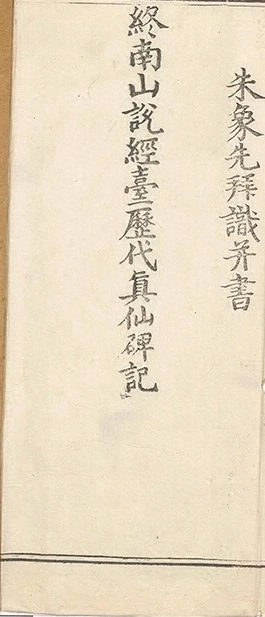 朱象先拜識并書
終南山説經臺歷代真仙碑記